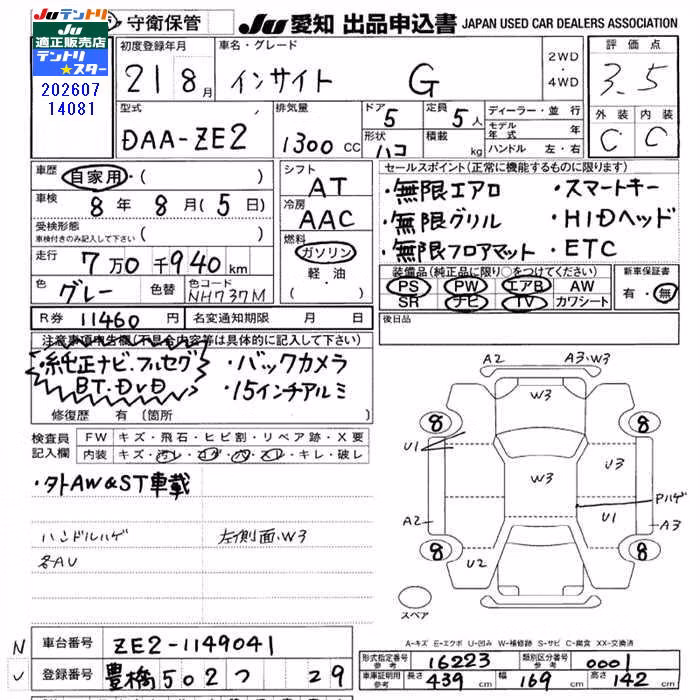 Juテントリ 守衛保管 Ju 愛知 出品申込書 JAPAN USED CAR DEALERS ASSOCIATION
適正販売店
テントリ
★スター
202607
14081
初度登録年月 車名・グレード 2WD・4WD 評価点
21 8月 インサイト G 3.5
型式 排気量 ドア 5 定員 5人 ディーラー・並行
DAA-ZE2 1300 CC 形状 ハコ 積載 kg モデル年式 年
ハンドル 左・右
外装 内装
C C
車歴 自家用・( )
シフト AT
車検 8年 8月(5日)
冷房 AAC
受検形態 車検付きのみ記入して下さい ( )
燃料 ガソリン
軽・油
( )
走行 7万0千940km
色 グレー 色替 色コード NH737M
R券 11460円 名変通知期限 月 日
セールスポイント(正常に機能するものに限ります)
・無限エアロ ・スマートキー
・無限グリル ・HIDヘッド
・無限フロアマット ・ETC
装備品(純正品に限り○をつけてください) 新車保証書
PS PW エアB AW 有・無
SR ナビ TV カワシート
後日品
注意事項申告欄(不具合内容等は具体的に記入して下さい)
・純正ナビ・フルセグ ・バックカメラ
BT・DVD ・15インチアルミ
修復歴 有(箇所
検査員記入欄 FW キズ・飛石・ヒビ割・リペア跡・X要
内装 キズ・汚レ・コゲ・穴・スレ・キレ・破レ
・外AW&ST車載
ハンドルハゲ 左側面・W3
各AU
A2 A3・W3
W3
8 8
U1 U3
W3
Pハゲ
A2 U1 A3
8 8
U2
スペア
A-キズ E-エクボ U-凹み W-補修跡 S-サビ C-腐食 XX-交換済
N 車台番号 ZE2-1149041
レ 登録番号 豊橋502つ 29
形式指定番号参考 16223 類別区分番号参考 0001
車庫証明用参考 長さ 439cm 幅 169cm 高さ 142cm